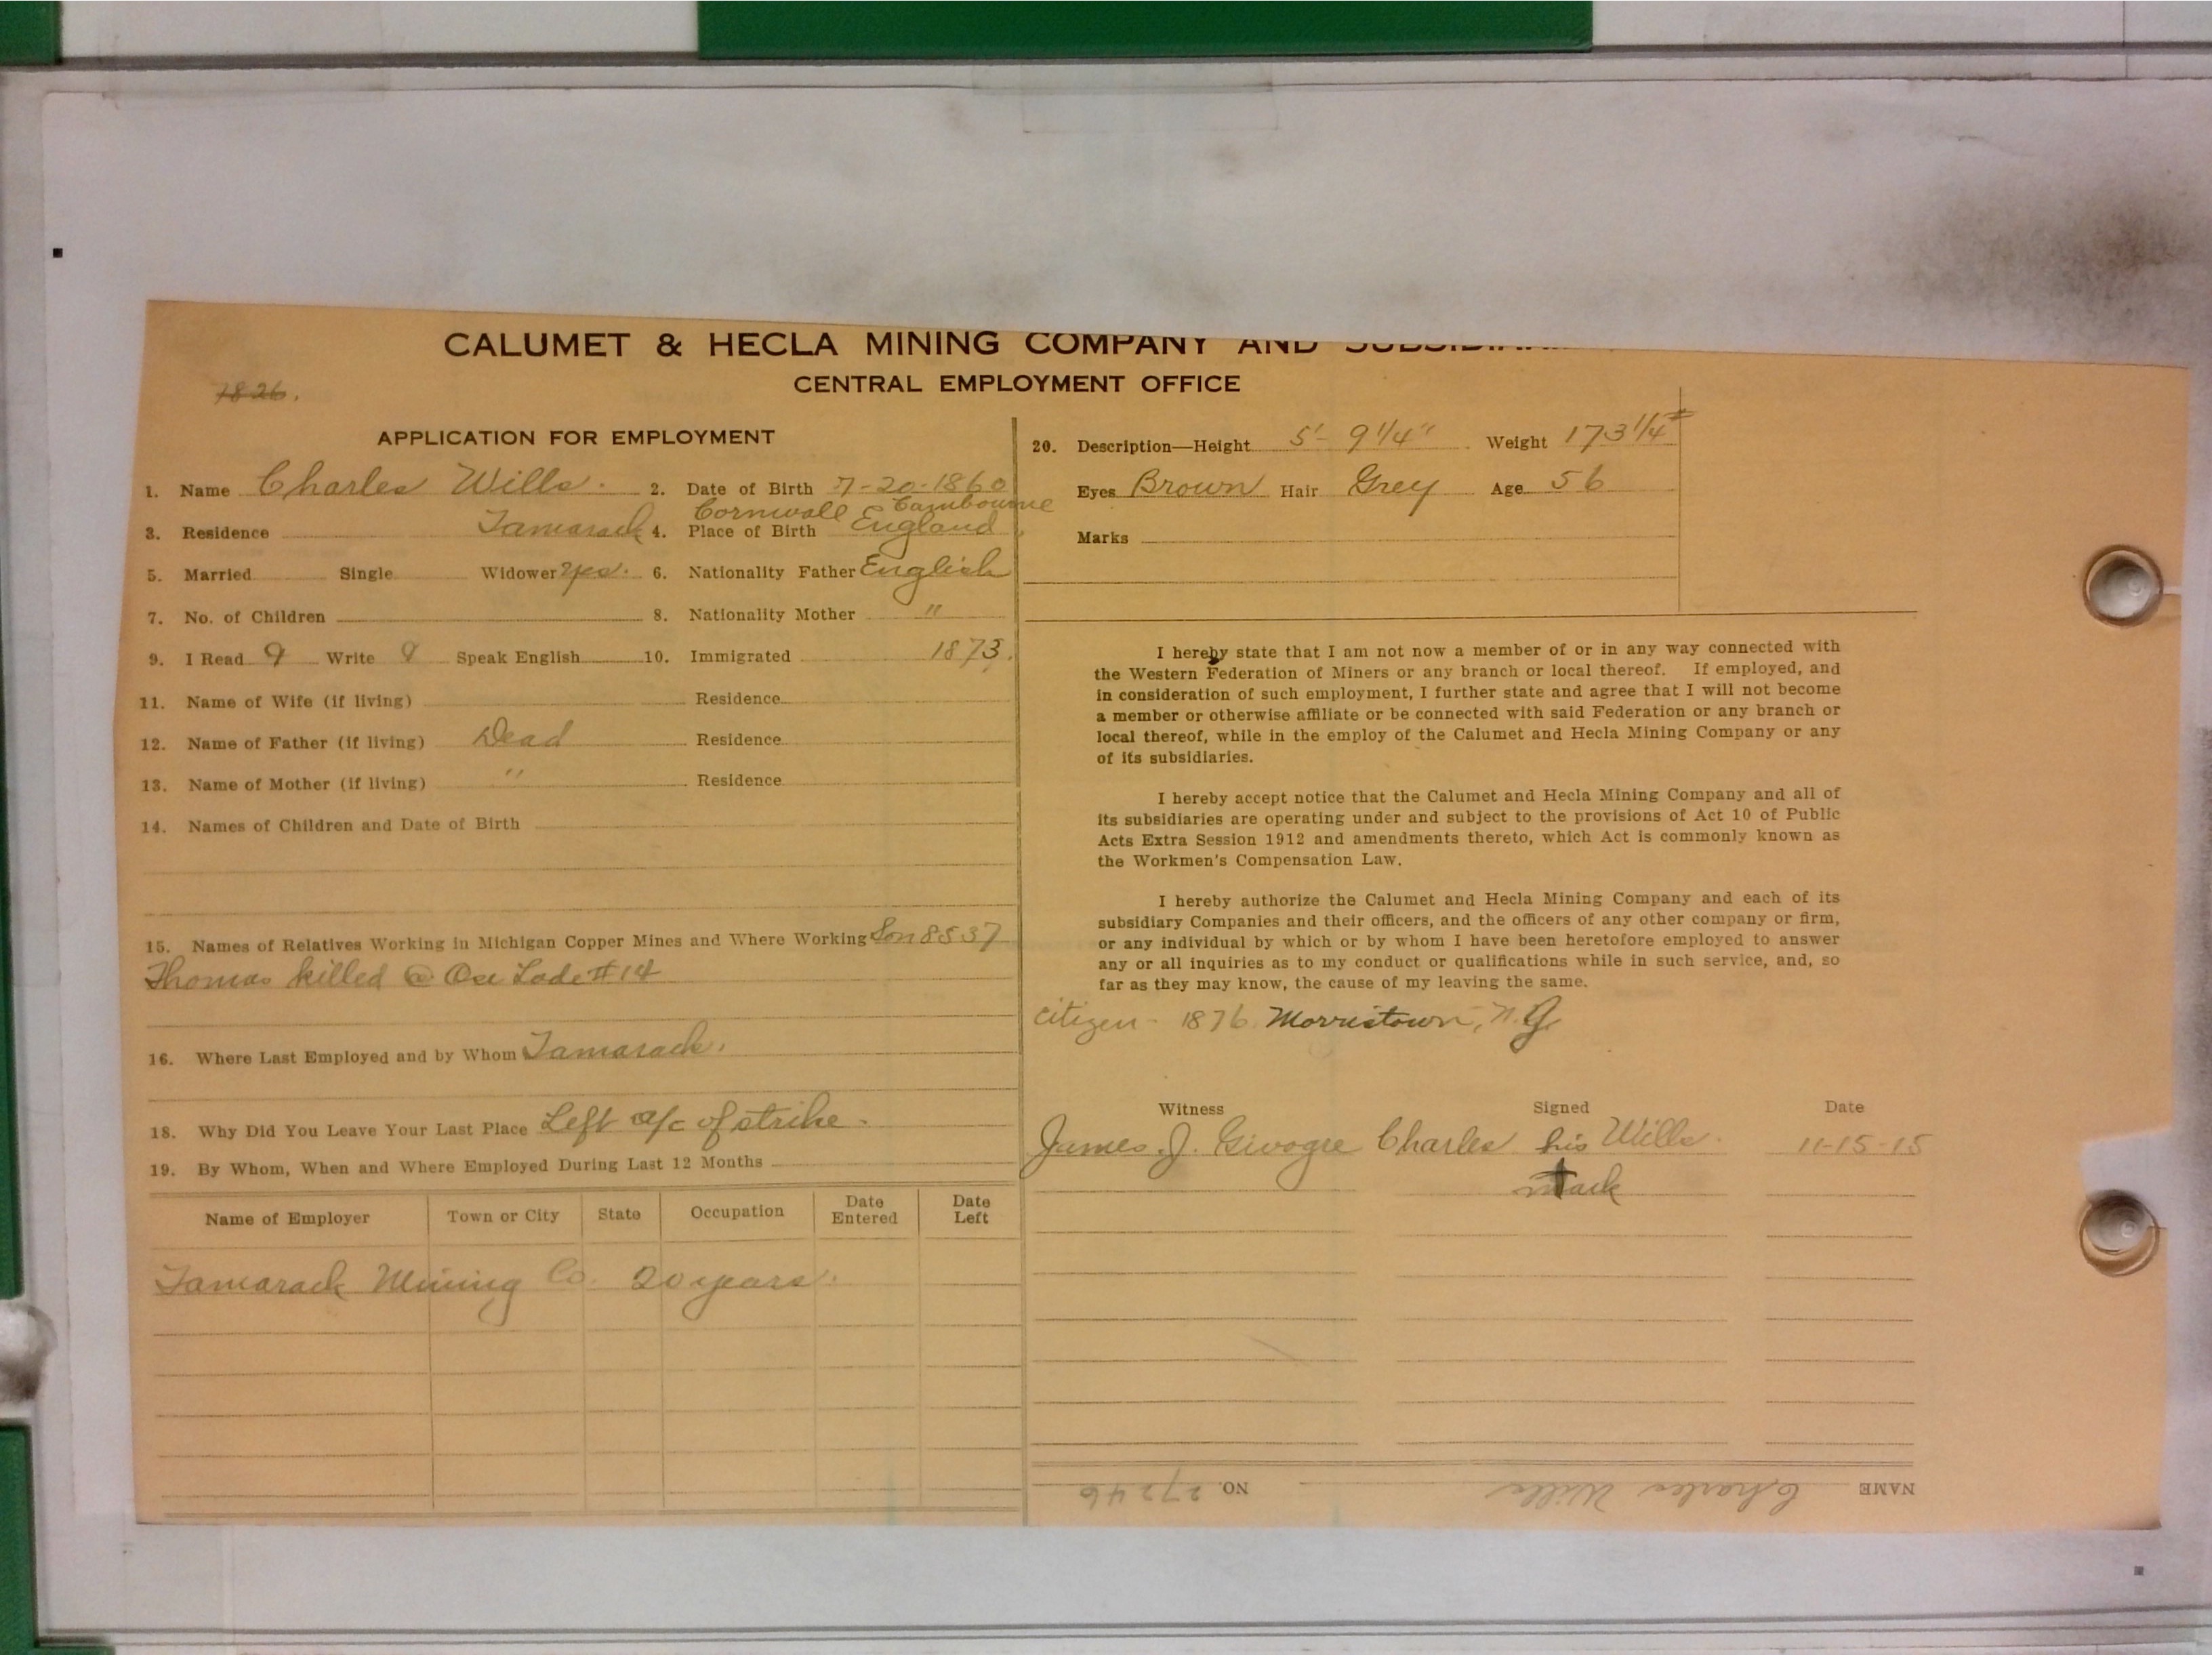 CALUMET & HECLA MINING COMPANY AND
CENTRAL EMPLOYMENT OFFICE
7826.
APPLICATION FOR EMPLOYMENT
1. Name Charles Wills. 2. Date of Birth 7-20-1860
Cornwall Cambourne
3. Residence Tamarack 4. Place of Birth England
5. Married Single Widower yes. 6. Nationality Father English
7. No. of Children 8. Nationality Mother "
9. I Read Write Speak English 10. Immigrated 1873.
11. Name of Wife (if living) Residence
12. Name of Father (if living) Dead Residence
13. Name of Mother (if living) " Residence
14. Names of Children and Date of Birth
15. Names of Relatives Working in Michigan Copper Mines and Where Working Son 8537
Thomas killed @ Lode #14
16. Where Last Employed and by Whom Tamarack.
18. Why Did You Leave Your Last Place Left a/c of strike.
19. By Whom, When and Where Employed During Last 12 Months
Name of Employer Town or City State Occupation Date Entered Date Left
Tamarack Mining Co. 20 years.
20. Description—Height 5'- 9 1/4" Weight 173 1/4 #
Eyes Brown Hair Grey Age 56
Marks
I hereby state that I am not now a member of or in any way connected with
the Western Federation of Miners or any branch or local thereof. If employed, and
in consideration of such employment, I further state and agree that I will not become
a member or otherwise affiliate or be connected with said Federation or any branch or
local thereof, while in the employ of the Calumet and Hecla Mining Company or any
of its subsidiaries.
I hereby accept notice that the Calumet and Hecla Mining Company and all of
its subsidiaries are operating under and subject to the provisions of Act 10 of Public
Acts Extra Session 1912 and amendments thereto, which Act is commonly known as
the Workmen's Compensation Law.
I hereby authorize the Calumet and Hecla Mining Company and each of its
subsidiary Companies and their officers, and the officers of any other company or firm,
or any individual by which or by whom I have been heretofore employed to answer
any or all inquiries as to my conduct or qualifications while in such service, and, so
far as they may know, the cause of my leaving the same.
citizen - 1876 Morristown, N.J.
Witness Signed Date
James. J. Givogre Charles his Wills. 11-15-15
mark
NAME Charles Wills NO. 27246